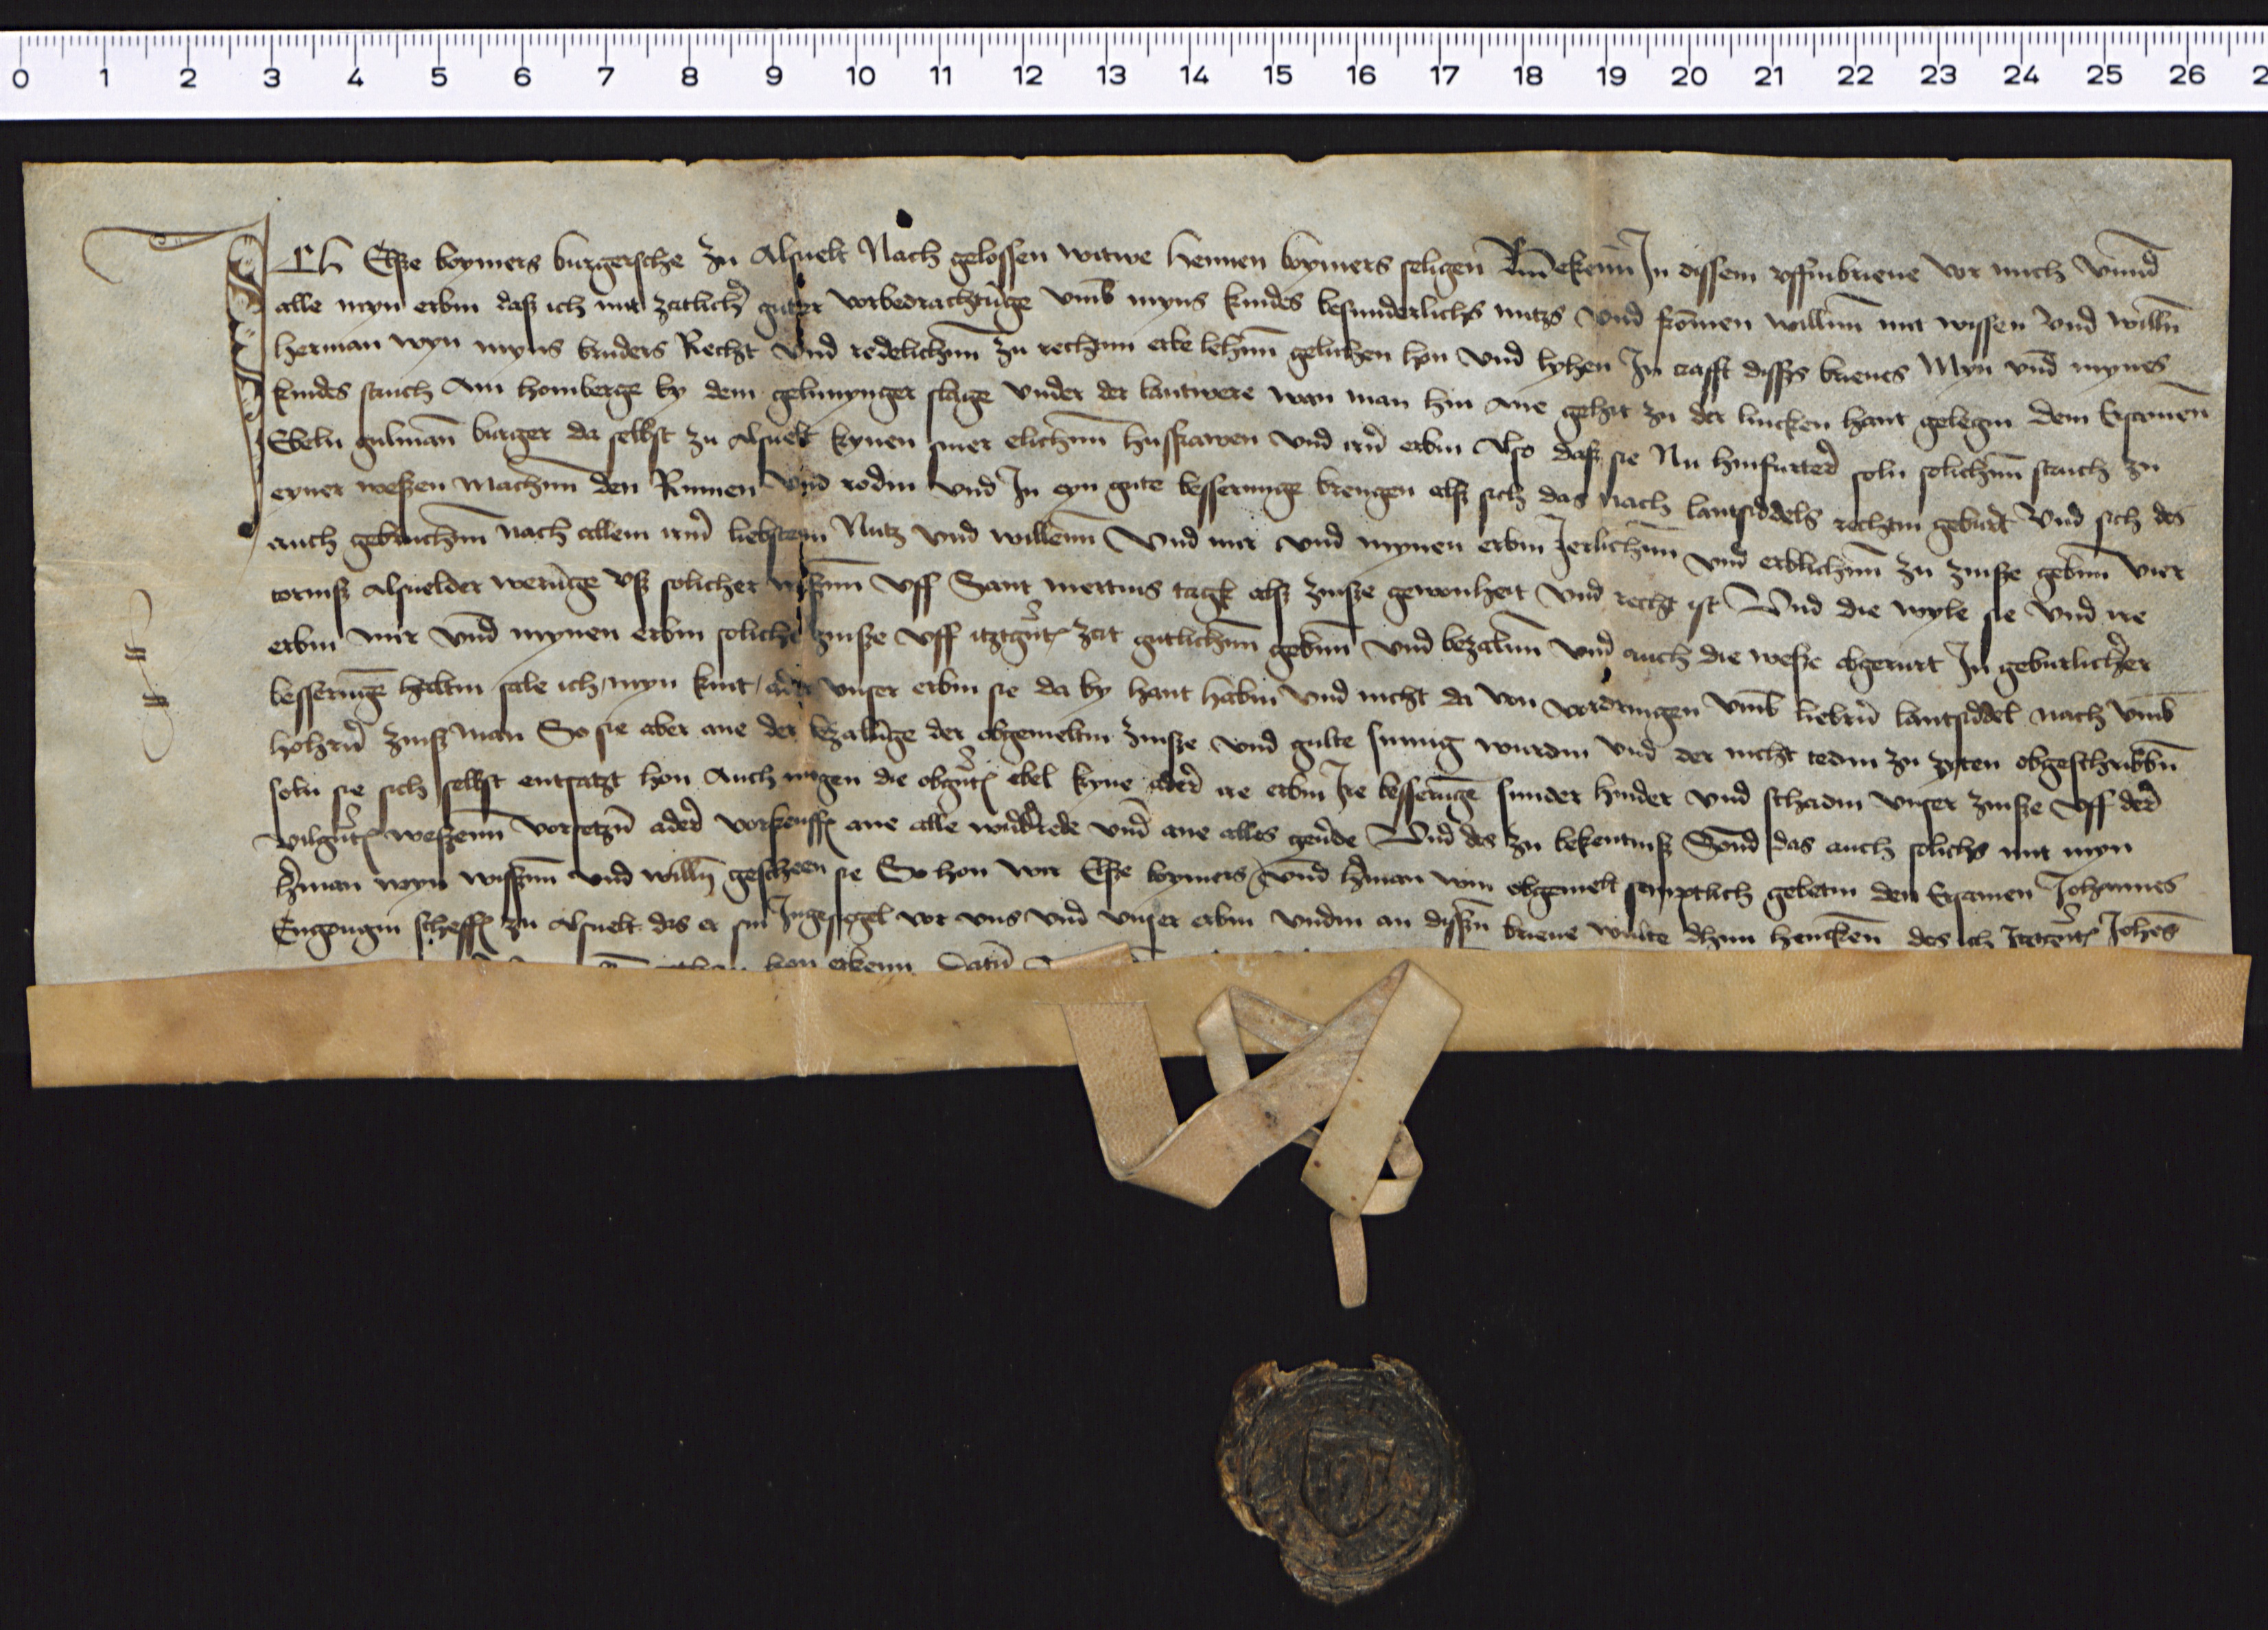 0 1 2 3 4 5 6 7 8 9 10 11 12 13 14 15 16 17 18 19 20 21 22 23 24 25 26 2
Ich Else boymers burgersche zu Alsuelt Nach gelossen witwe hennen boymers seligen Bekenn In dissem uffinbrieue vor mich Vnnd
alle myn erbin das ich mit zitlichr guter vorbedrachtunge vmb myns kindes besunderlichs nutzs vnd fromen willenn mit wissen vnd willn
herman wyn myns bruders Recht vnd redelichenn zu rechtim erbe lehenn gelichen hon vnd lyhen In crafft disses brieues Myn vnd mynes
kindes struch Am homberge by dem gelnunger slage vnder der lantwere wan man hin ane gehit zu der lincken hant gelegin dem Ersamen
Ebeln gulman burger da selbst zu Alsuelt kynen siner elichenn husfrawen vnd irn erbin Also das sie Nu hinfurter soln solichenn struch zu
eyner wesen machenn den Rumen vnd rodin vnd In eyn gute besserunge brengen als sich das nach lantsiddels rechtin geburt vnd sich des
auch gebruchenn nach allem irm liebstem Nutz vnd willenn Vnd mir vnd mynen erbin Jerlichenn vnd erblichenn zu zinse gebin vier
torniß Alsuelder werunge vß solicher wesenn vff Sant mertins tagk als zinse gewonheit vnd recht ist Vnd die wyle sie vnd ire
erbin mir vnd mynen erbin soliche zinse vff itztgnt zit gutlichenn gebinn vnd bezalenn vnd auch die wese abgerurt In geburlicher
besserunge haltin sale ich myn kint ader vnser erbin sie da by hant habin vnd nicht da von vordringen vmb liebern lantsiddel nach vmb
hohern zinß man So sie aber ane der bezalunge der abgemeltin zinse vnd gulte sumig wurdin vnd der nicht tedin zu zyten obgeschribbn
soln sie sich selbst entsatzt hon Auch mogen die obgnt ebel kyne ader ire erbin Ire besserunge sunder hinder vnd schadin vnser zinse vff der
vilgnt wesenn vorsetzn ader vorkeuff ane alle widerrede vnd ane alles geuerde Vnd des zu bekentniß Sond das auch solichs mit myn
herman wyn wissenn vnd willn gescheen sie So hon wir Else boymers vnd herman win obgemelt semptlich gebetin den Ersamen Johannes
scheff zu Alsuelt das er sin Ingesigel vor vns vnd vnser erbin vndin an dissin brieue wulte thun hencken des ich itztgnt Johes
hon erkenn Datum